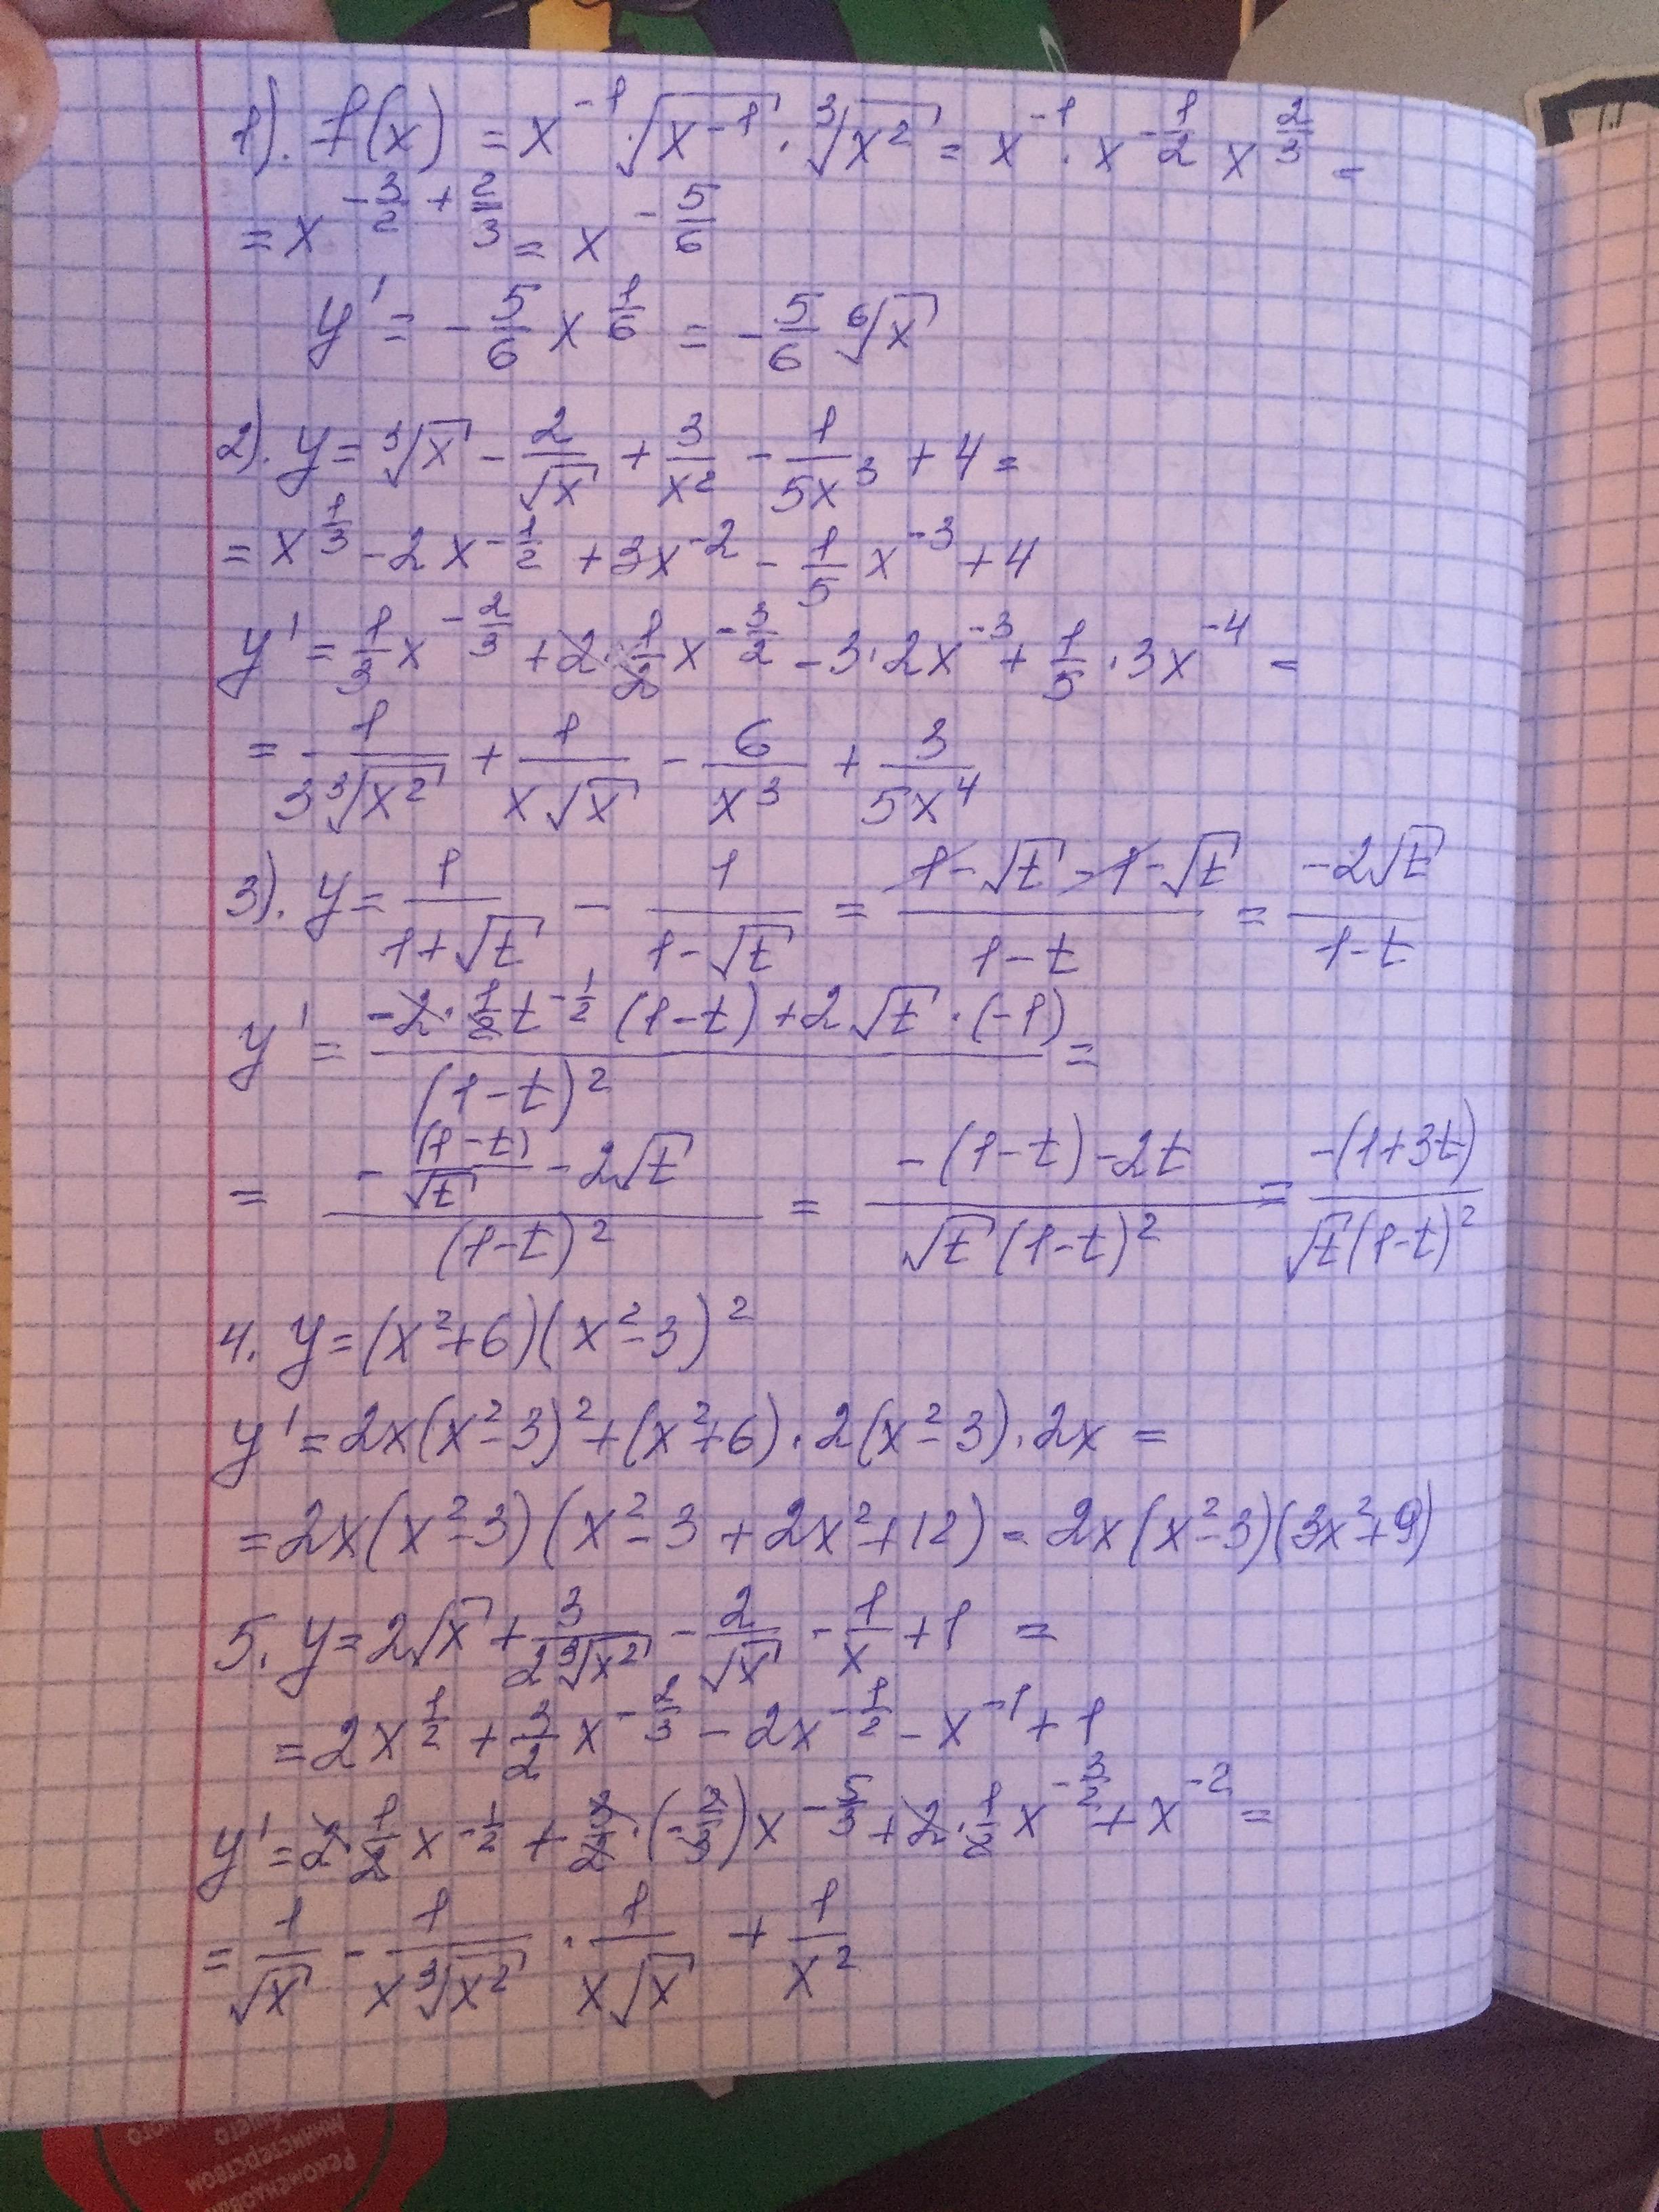 1). f(x) = x^{-1} · √(x^{-1}) · ∛(x²) = x^{-1} · x^{-1/2} x^{2/3} =
= x^{-3/2 + 2/3} = x^{-5/6}
y' = -5/6 x^{1/6} = -5/6 ⁶√x
2). y = ∛x - 2/√x + 3/x² - 1/5x³ + 4 =
= x^{1/3} - 2x^{-1/2} + 3x^{-2} - 1/5 x^{-3} + 4
y' = 1/3 x^{-2/3} + 2 · 1/2 x^{-3/2} - 3 · 2x^{-3} + 1/5 · 3x^{-4} =
= 1/(3∛(x²)) + 1/(x√x) - 6/x³ + 3/(5x⁴)
3). y = 1/(1+√t) - 1/(1-√t) = (1-√t-1-√t)/(1-t) = (-2√t)/(1-t)
y' = (-2 · 1/2 t^{-1/2} (1-t) + 2√t · (-1))/(1-t)² =
= (-(1-t)/√t - 2√t)/(1-t)² = (-(1-t)-2t)/(√t (1-t)²) = (-(1+3t))/(√t(1-t)²)
4. y = (x²+6)(x²-3)²
y' = 2x(x²-3)² + (x²+6) · 2(x²-3) · 2x =
= 2x(x²-3)(x²-3 + 2x²+12) = 2x(x²-3)(3x²+9)
5. y = 2√x + 3/(2∛(x²)) - 2/√x - 1/x + 1 =
= 2x^{1/2} + 3/2 x^{-2/3} - 2x^{-1/2} - x^{-1} + 1
y' = 2 · 1/2 x^{-1/2} + 3/2 · (-2/3) x^{-5/3} + 2 · 1/2 x^{-3/2} + x^{-2} =
= 1/√x - 1/(x∛(x²)) · 1/(x√x) + 1/x²
МИНИСТЕРСТВОМ